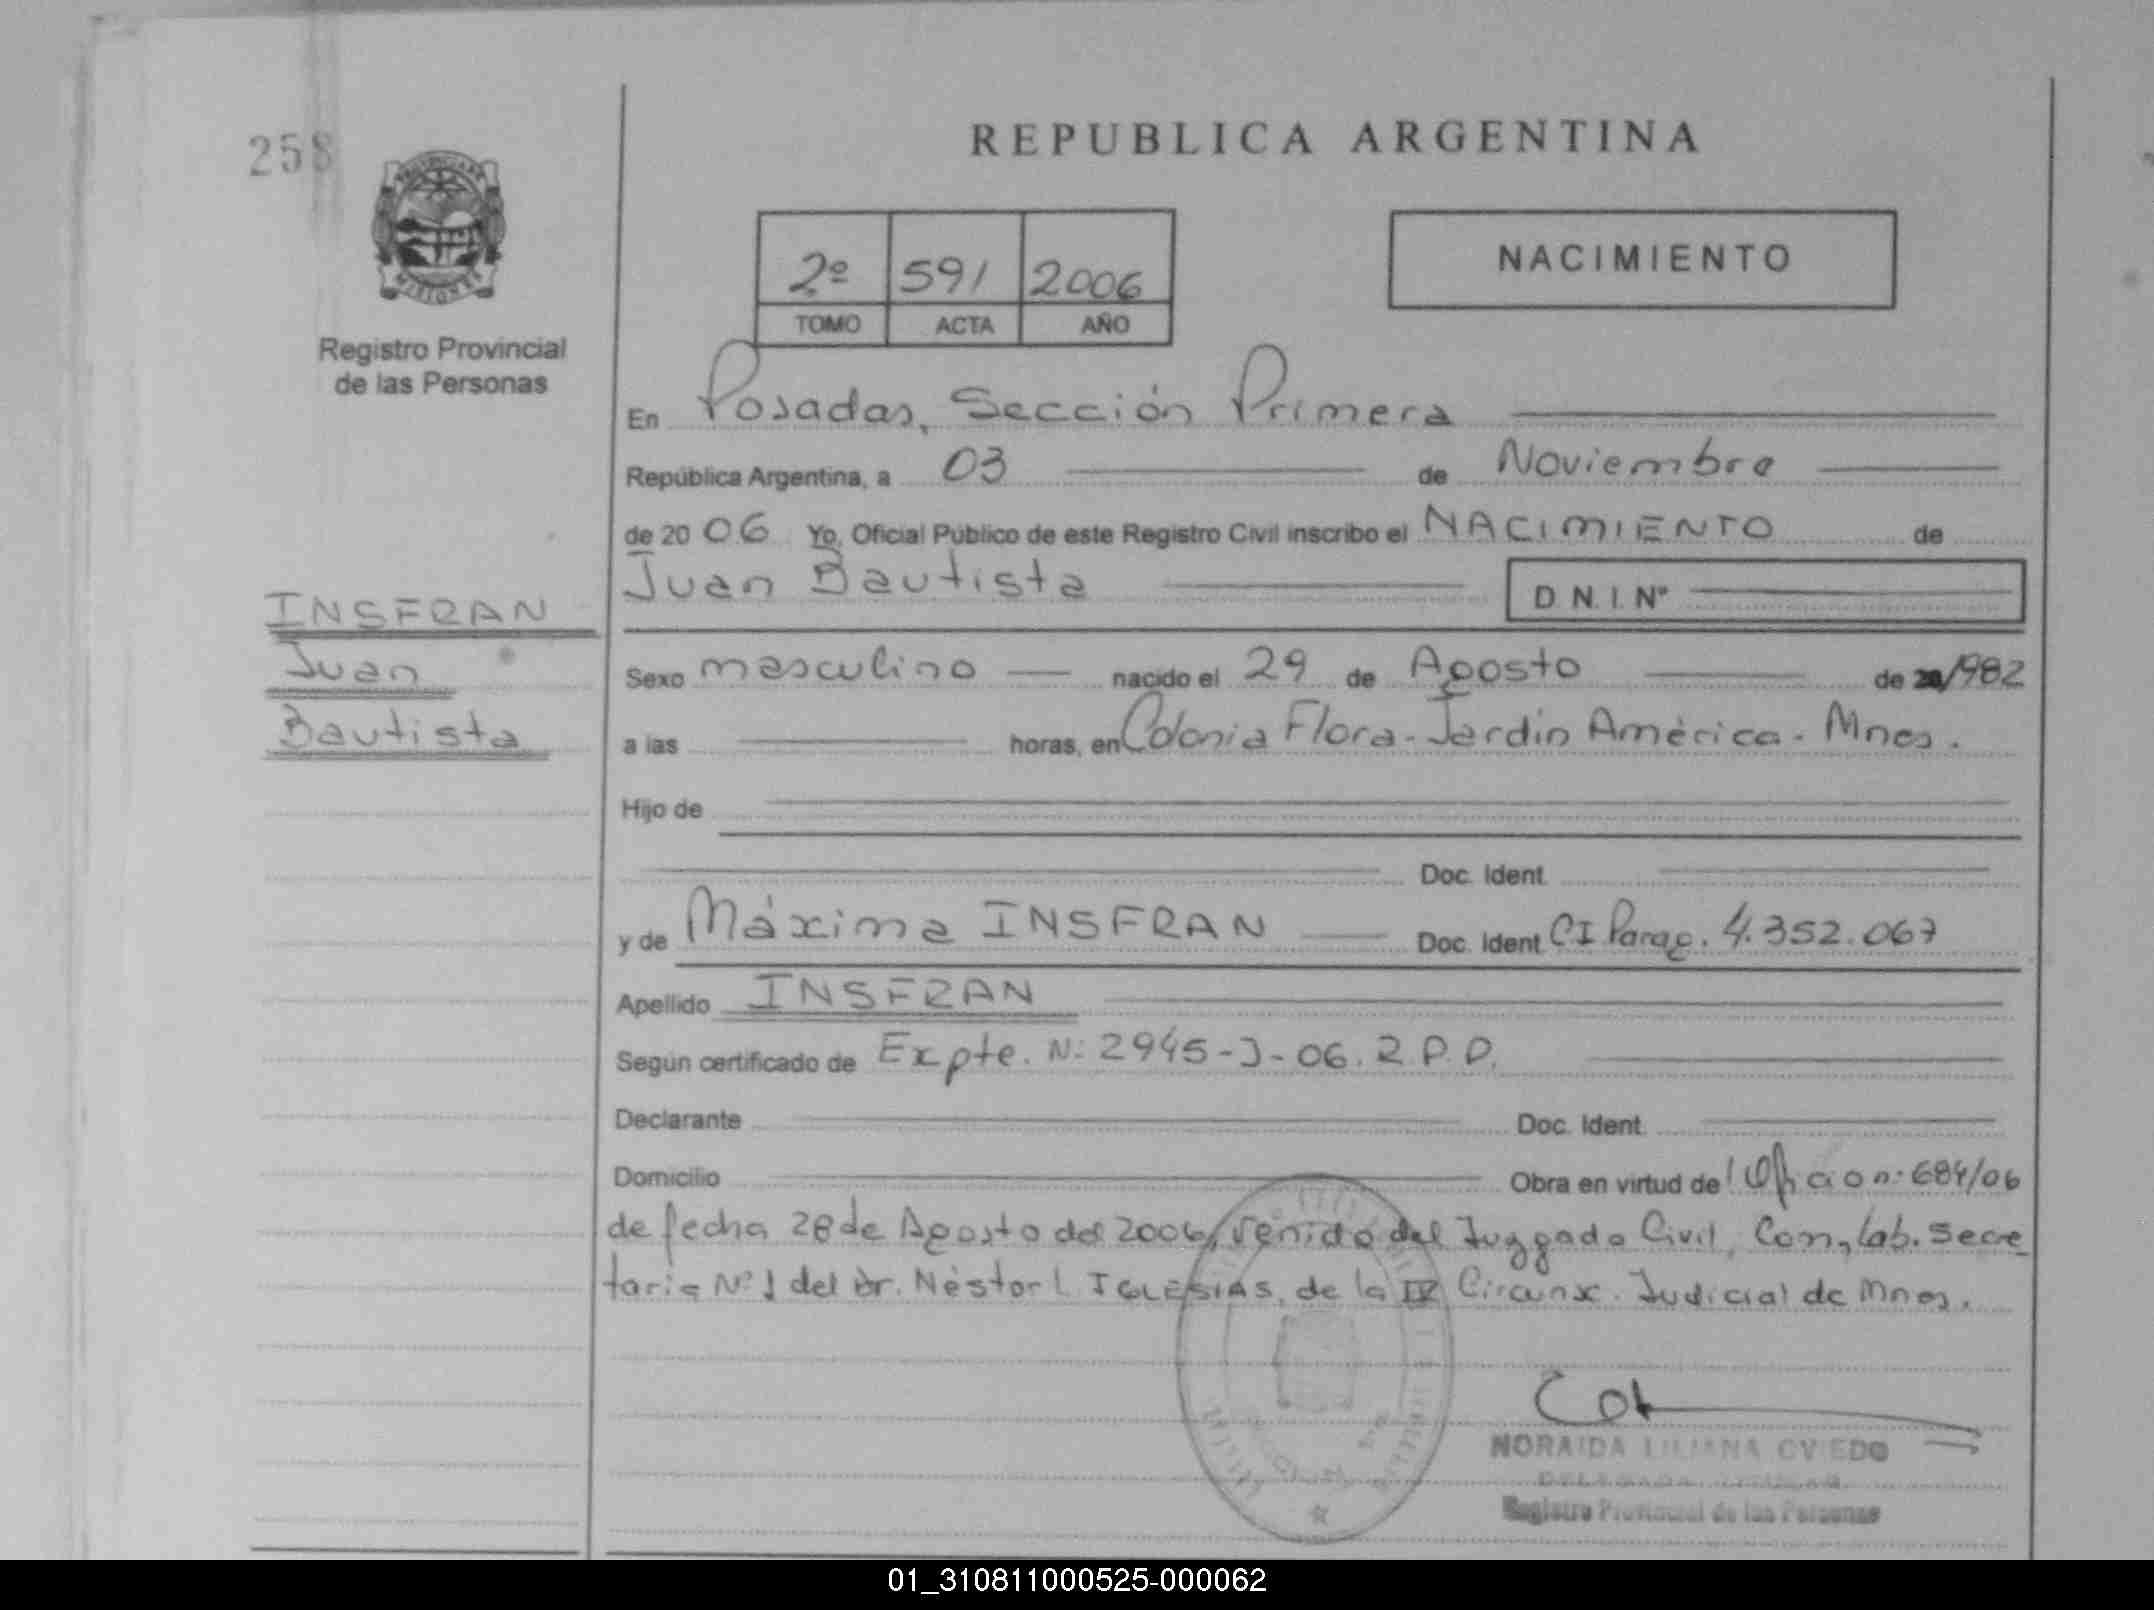 258
REPUBLICA ARGENTINA
PROVINCIA DE
MISIONES
Registro Provincial
de las Personas
2º 591 2006
TOMO ACTA AÑO
NACIMIENTO
En Posadas, Sección Primera
República Argentina, a 03 de Noviembre
de 20 06 Yo, Oficial Público de este Registro Civil inscribo el NACIMIENTO de
Juan Bautista D.N.I. Nº
INSFRAN
Juan
Bautista
Sexo masculino nacido el 29 de Agosto de 1982
a las horas, en Colonia Flora - Jardín América - Mnes.
Hijo de
Doc. Ident.
y de Máxima INSFRAN Doc. Ident. CI Parag. 4.352.067
Apellido INSFRAN
Según certificado de Expte. Nº 2945-J-06. R.P.P.
Declarante Doc. Ident.
Domicilio Obra en virtud de Oficio nº 684/06
de fecha 28 de Agosto del 2006, venido del Juzgado Civil, Com, Lab. Secre
taria Nº 1 del Dr. Néstor L IGLESIAS, de la IV Circunsc. Judicial de Mnes.
NORAIDA LILIANA OVIEDO
Registro Provincial de las Personas
01_310811000525-000062